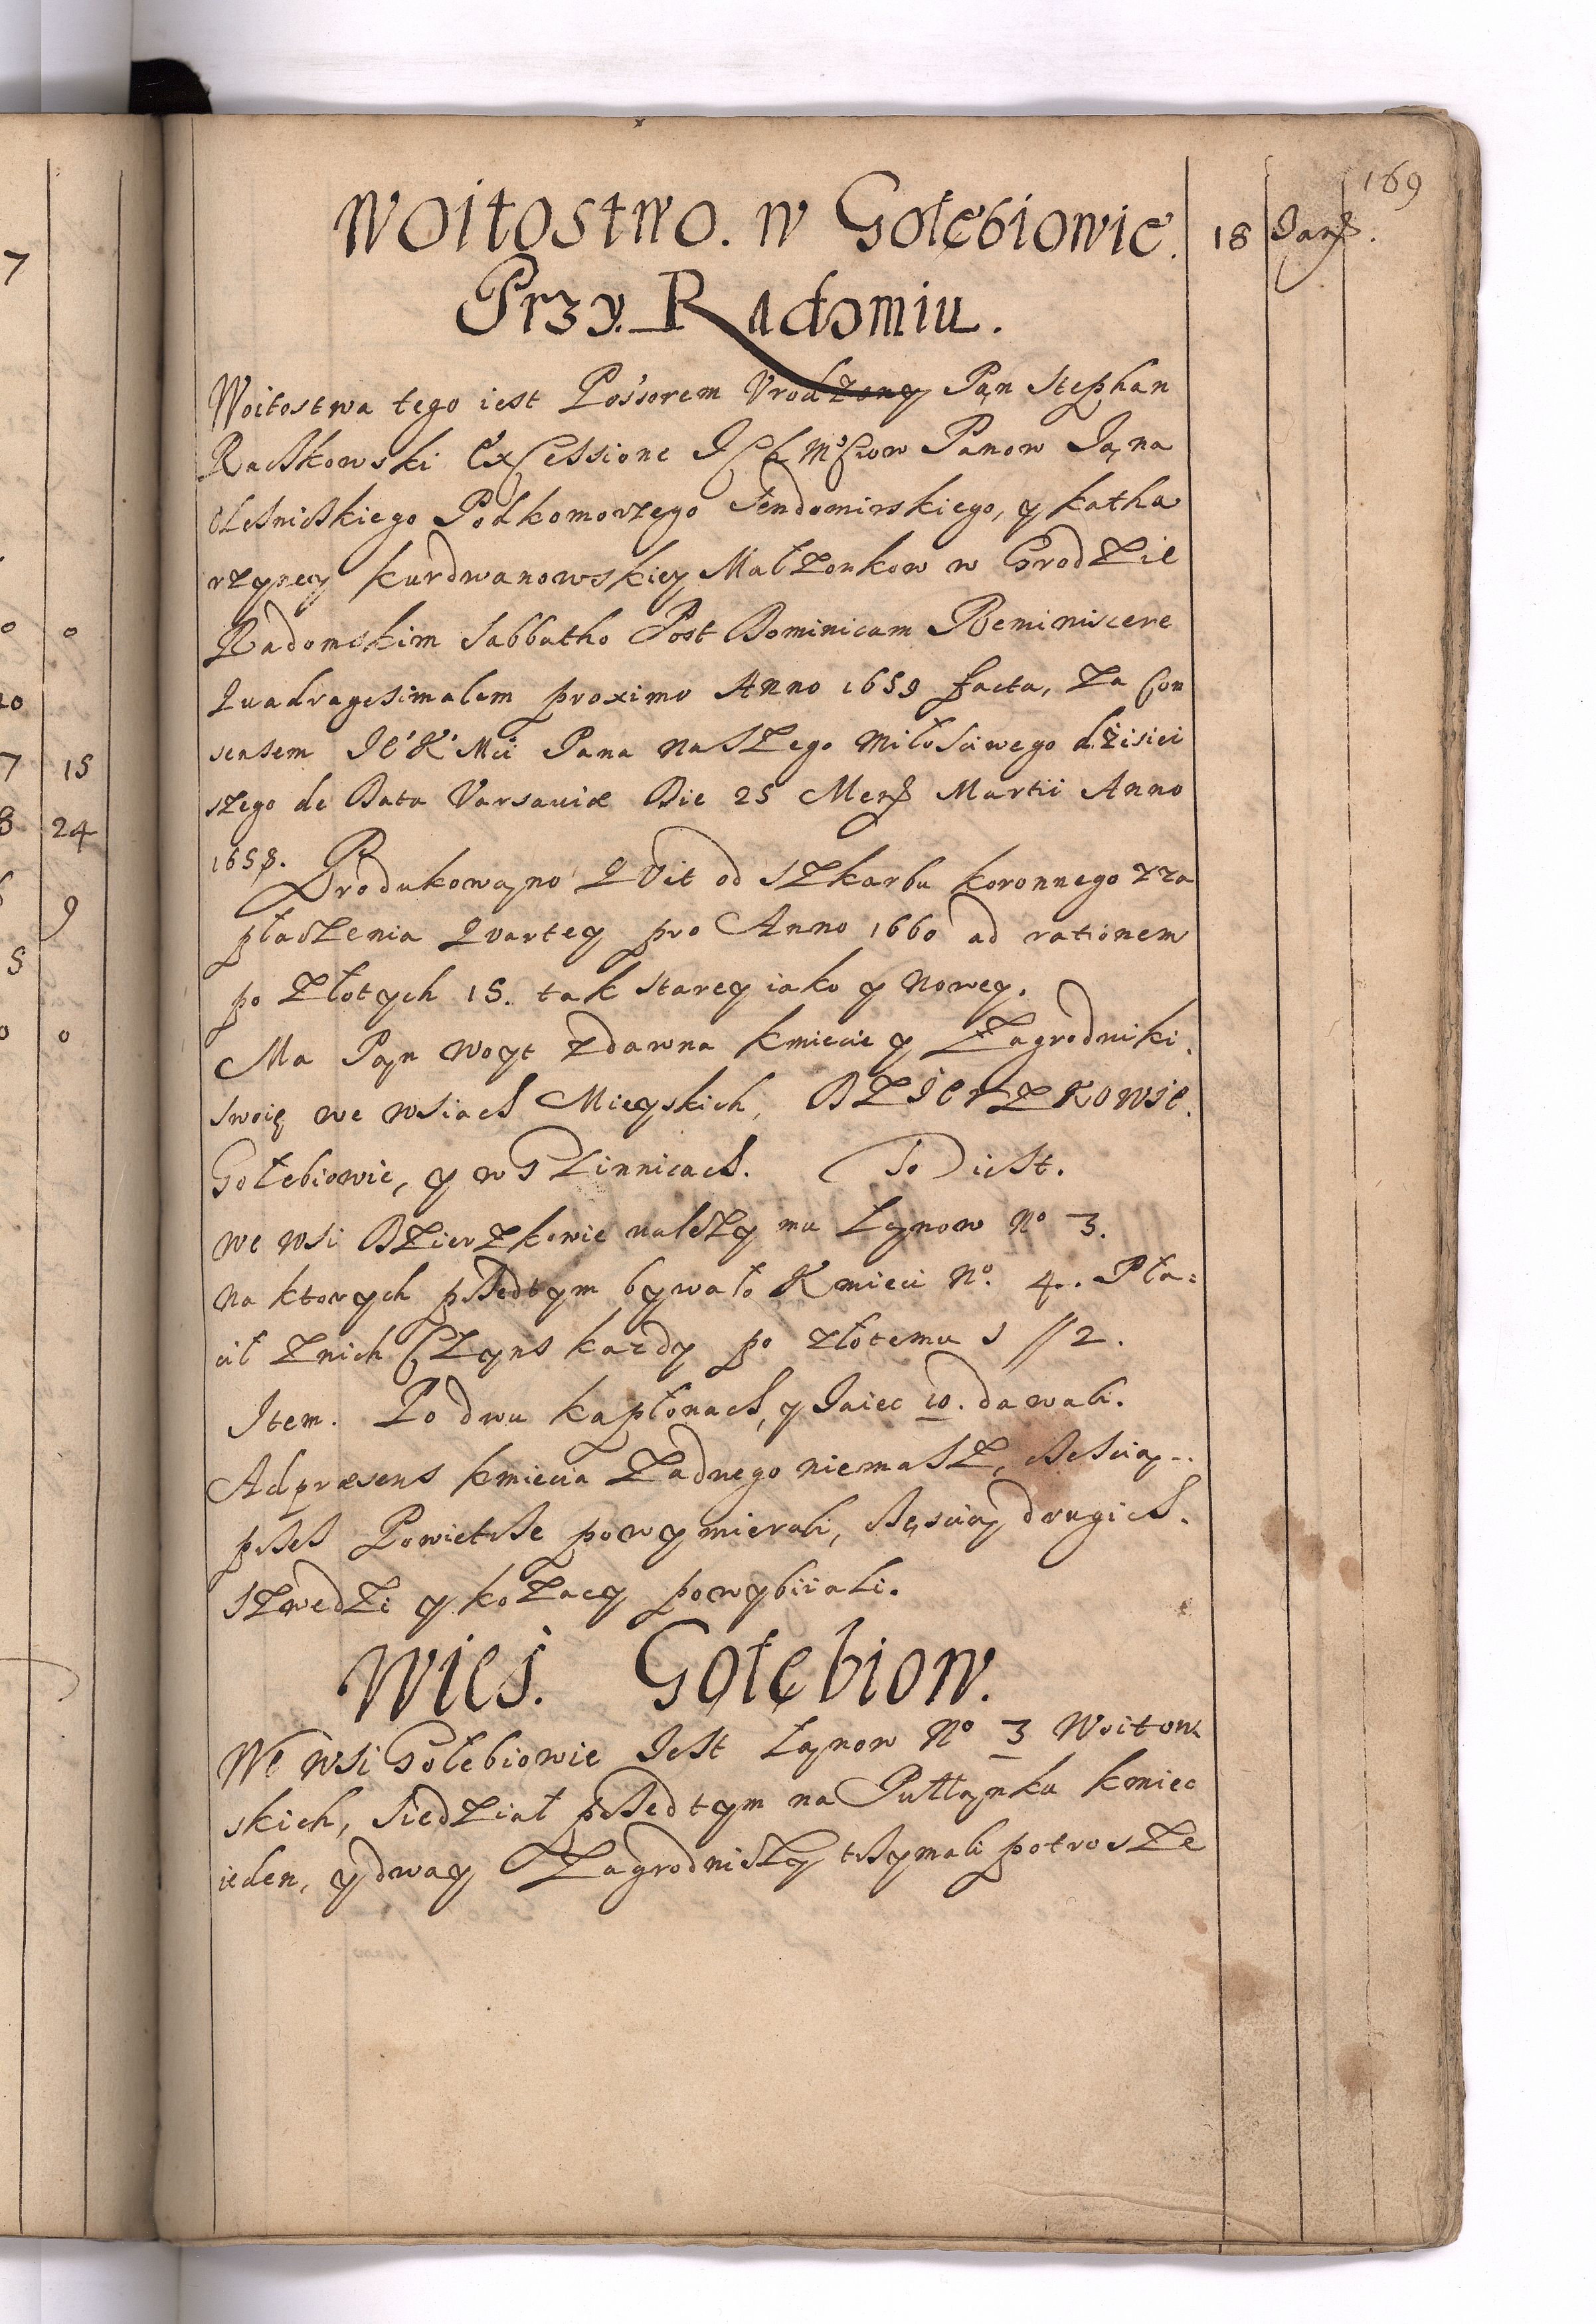 169
Woitostwo. w Gołębiowie.
18 Janˢ.
Przy. Radomiu.
Woitostwa tego iest Possorem Vrodzony Pan Stephan
Raczkowski ex Cessione Ich Mściow Panow Jana
Olesnickiego Podkomorzego Sendomirskiego, y katha
rzyney kurdwanowskiey Małzonkow w Grodzie
Radomskim Sabbatho Post Dominicam Reminiscere
Quadragesimalem proximo Anno 1659 facta, za Con
sensem Je° K° Mci Pana naszego Miłosciwego dzisiei
szego de Data Varsaviæ Die 25 Mens Martii Anno
1658. Produkowano Qvit od Szkarbu koronnego z za
płaczenia Qvartey pro Anno 1660 ad rationem
po Złotych 15. tak starey iako y Nowey.
Ma Pan Woyt zdawna kmiecie y Zagrodniki
swoie we wsiach Mieyskich, DZIerZKowie.
Gołebiowie, y w Glinnicach. To iest.
we wsi Dzierzkowie nalezy mu Łanow N° 3.
na ktorych przedtym bywało Kmieci N°. 4. Pła=
cił znich Czyns kazdy po złotemu 1 // 2.
Item. Po dwu kapłonach, y Jaiec 10. dawali.
Ad præsens kmiecia zadnego niemasz, czescią
przez Powietrze powymierali, częscią drugich
Szwedzi y kozacy powybiiali.
Wieś. Gołębiow.
We wsi Gołebiowie Jest Łanow N° 3 Woitow
skich, Siedział przedtym na Pułłanku kmiec
ieden, y dway Zagrodniczy trzymali potrosze
7
0 0
40
7 15
8 24
9
5
0 0